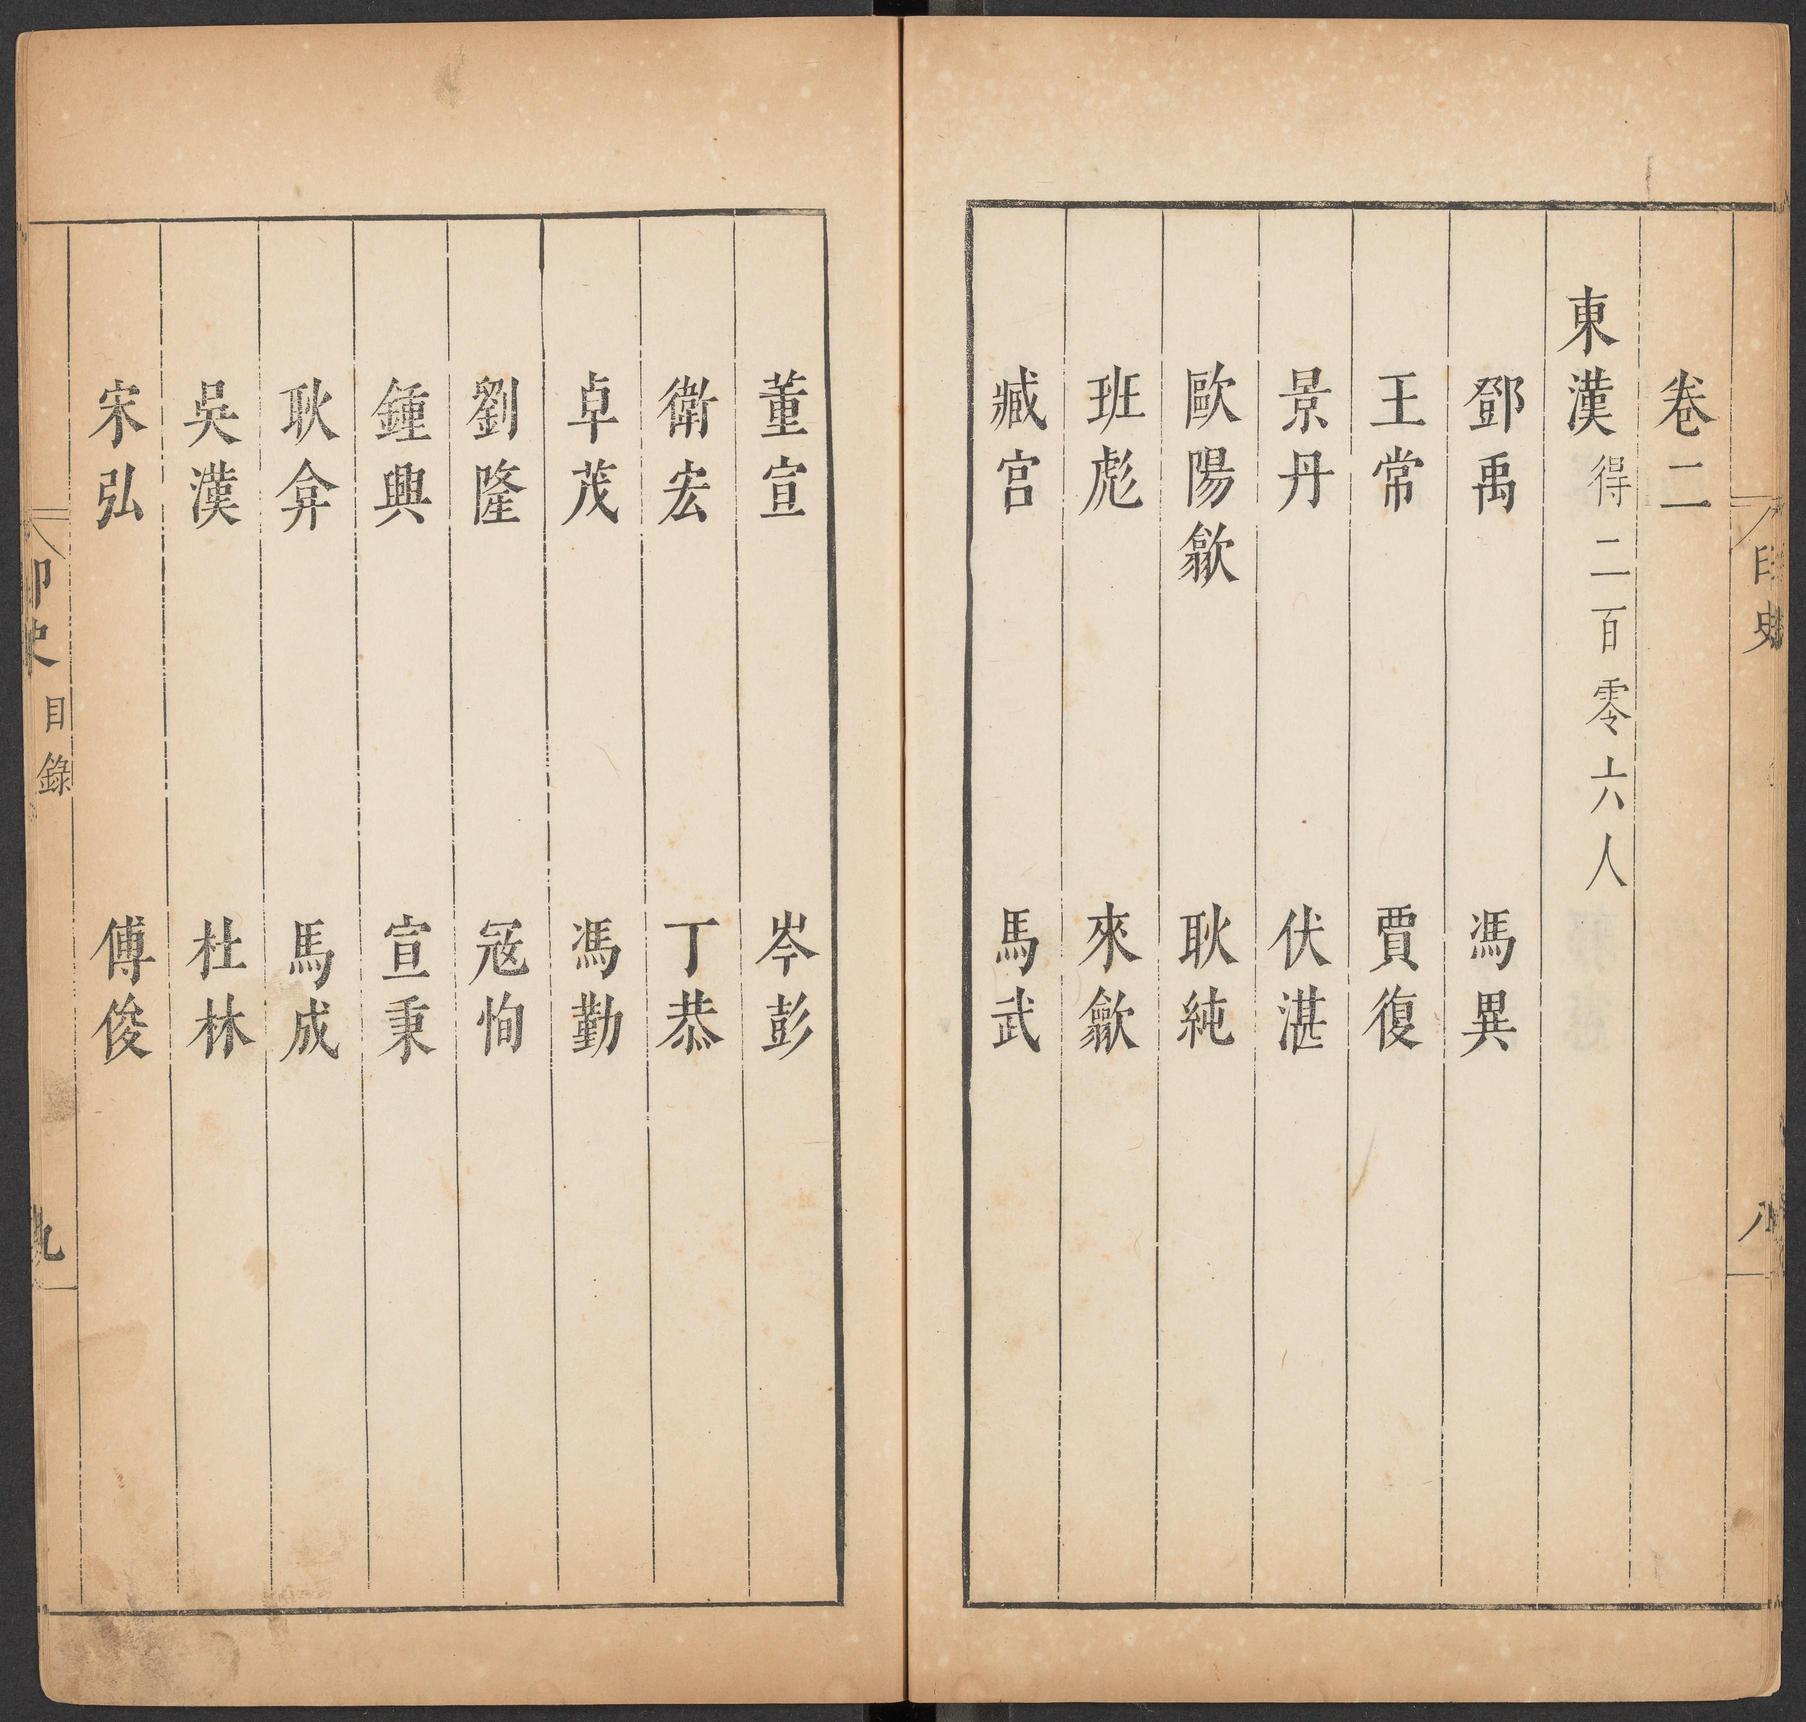 卷二
東漢得二百零六人
鄧禹 馮異
王常 賈復
景丹 伏湛
歐陽歙 耿純
班彪 來歙
臧宮 馬武
董宣 岑彭
衛宏 丁恭
卓茂 馮勤
劉隆 寇恂
鍾興 宣秉
耿弇 馬成
吳漢 杜林
宋弘 傅俊
印史 目錄 九
印史 八